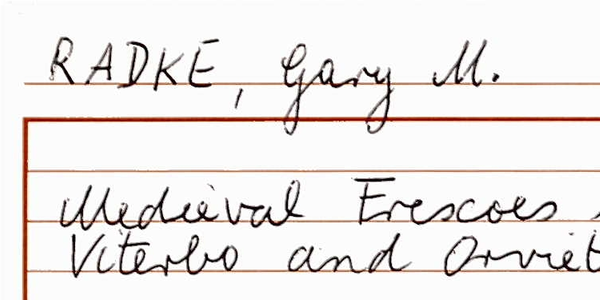 RADKE, Gary M.
Medieval Frescoes
Viterbo and Orviet